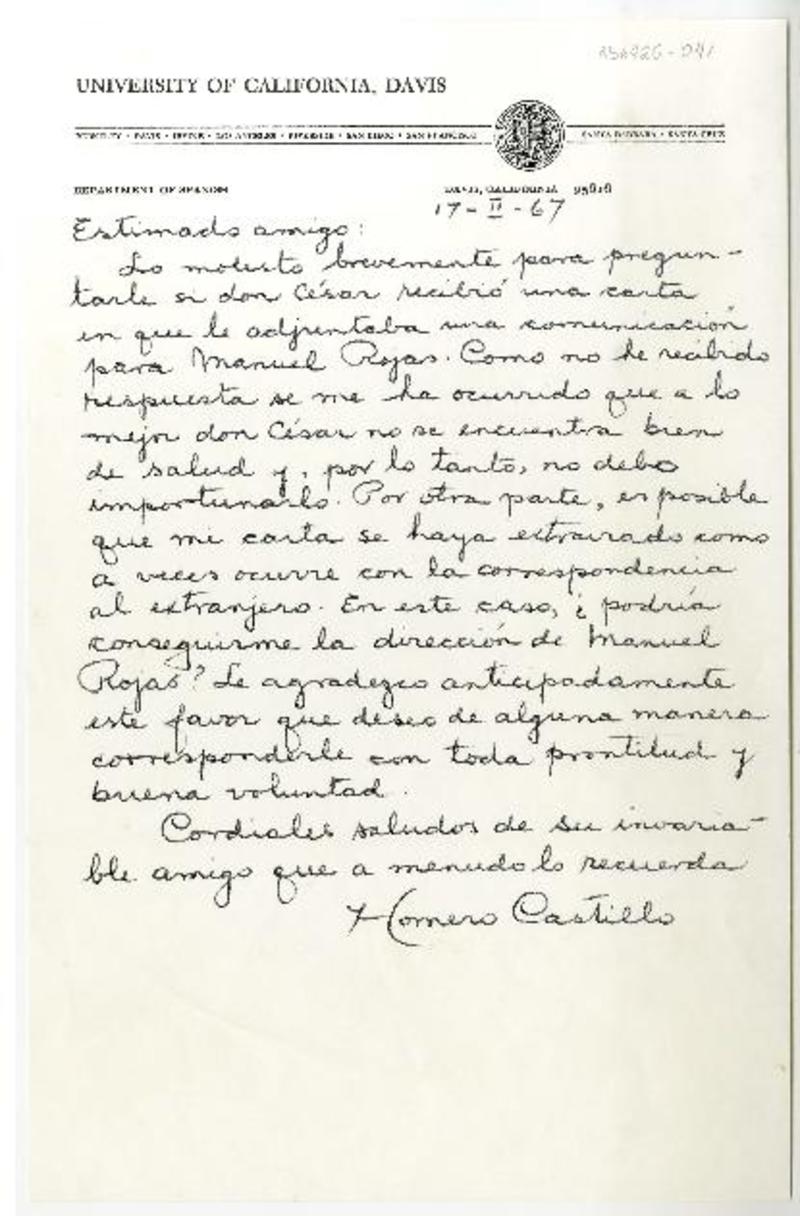 UNIVERSITY OF CALIFORNIA, DAVIS
BERKELEY • DAVIS • IRVINE • LOS ANGELES • RIVERSIDE • SAN DIEGO • SAN FRANCISCO SANTA BARBARA • SANTA CRUZ
DEPARTMENT OF SPANISH DAVIS, CALIFORNIA 95616
17-II-67
Estimado amigo:
Lo molesto brevemente para pregun-
tarle si don César recibió una carta
en que le adjuntaba una comunicación
para Manuel Rojas. Como no he recibido
respuesta se me ha ocurrido que a lo
mejor don César no se encuentra bien
de salud y, por lo tanto, no debo
importunarlo. Por otra parte, es posible
que mi carta se haya extraviado como
a veces ocurre con la correspondencia
al extranjero. En este caso, ¿podría
conseguirme la dirección de Manuel
Rojas? Le agradezco anticipadamente
este favor que deseo de alguna manera
corresponderle con toda prontitud y
buena voluntad.
Cordiales saludos de su invaria-
ble amigo que a menudo lo recuerda
Homero Castillo